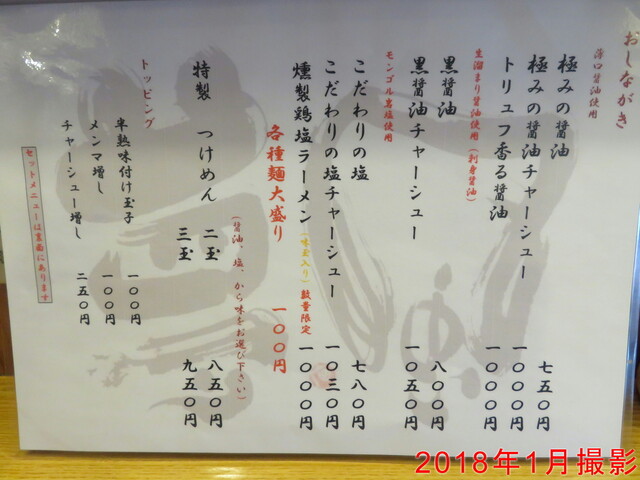 おしながき
薄口醤油使用
極みの醤油 七五〇円
極みの醤油チャーシュー 一〇〇〇円
トリュフ香る醤油 一〇〇〇円
生溜まり醤油使用(刺身醤油)
黒醤油 八〇〇円
黒醤油チャーシュー 一〇五〇円
モンゴル岩塩使用
こだわりの塩 七八〇円
こだわりの塩チャーシュー 一〇三〇円
燻製鶏塩ラーメン(味玉入り)数量限定 一〇〇〇円
各種麺大盛り 一〇〇円
(醤油、塩、から味をお選び下さい)
特製 つけめん 二玉 八五〇円
三玉 九五〇円
トッピング
半熟味付け玉子 一〇〇円
メンマ増し 一〇〇円
チャーシュー増し 二五〇円
セットメニューは裏面にあります
2018年1月撮影